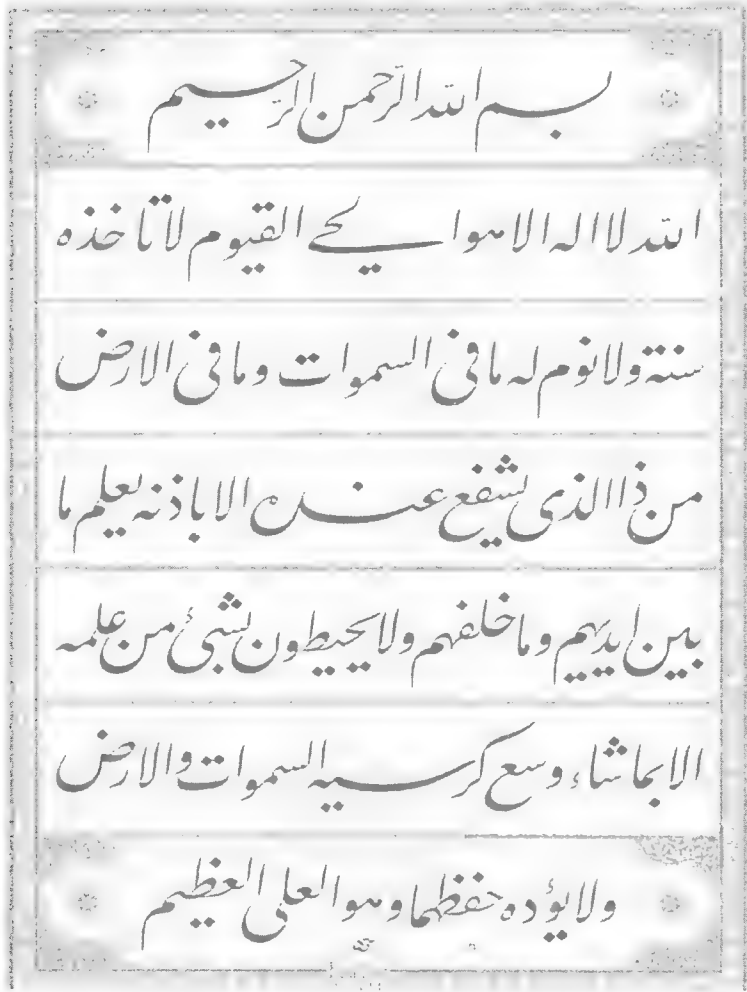 بسم الله الرحمن الرحیم
الله لا اله الا هو الحے القیوم لا تاخذه
سنة ولا نوم له ما فی السموات وما فی الارض
من ذا الذی یشفع عنده الا باذنه یعلم ما
بین ایدیهم وما خلفهم ولا یحیطون بشیئ من علمه
الا بما شاء وسع کرسیه السموات والارض
ولا یؤده حفظهما وهو العلی العظیم